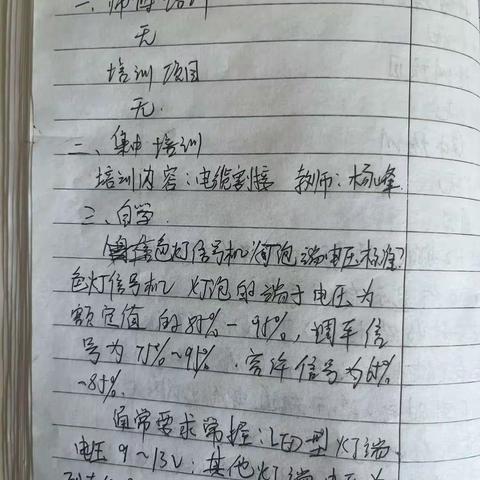 一、师傅培训
无
培训项目
无.
二、集中培训
培训内容:电缆割接 教师:杨峰
三、自学.
色灯信号机灯泡端电压标准?
色灯信号机 灯泡的端子电压为
额定值的85%-95%,调车信
号为75%~95%.容许信号为65%
~85%.
通常要求掌握:LED型灯端
电压9~13V;其他灯端电压为